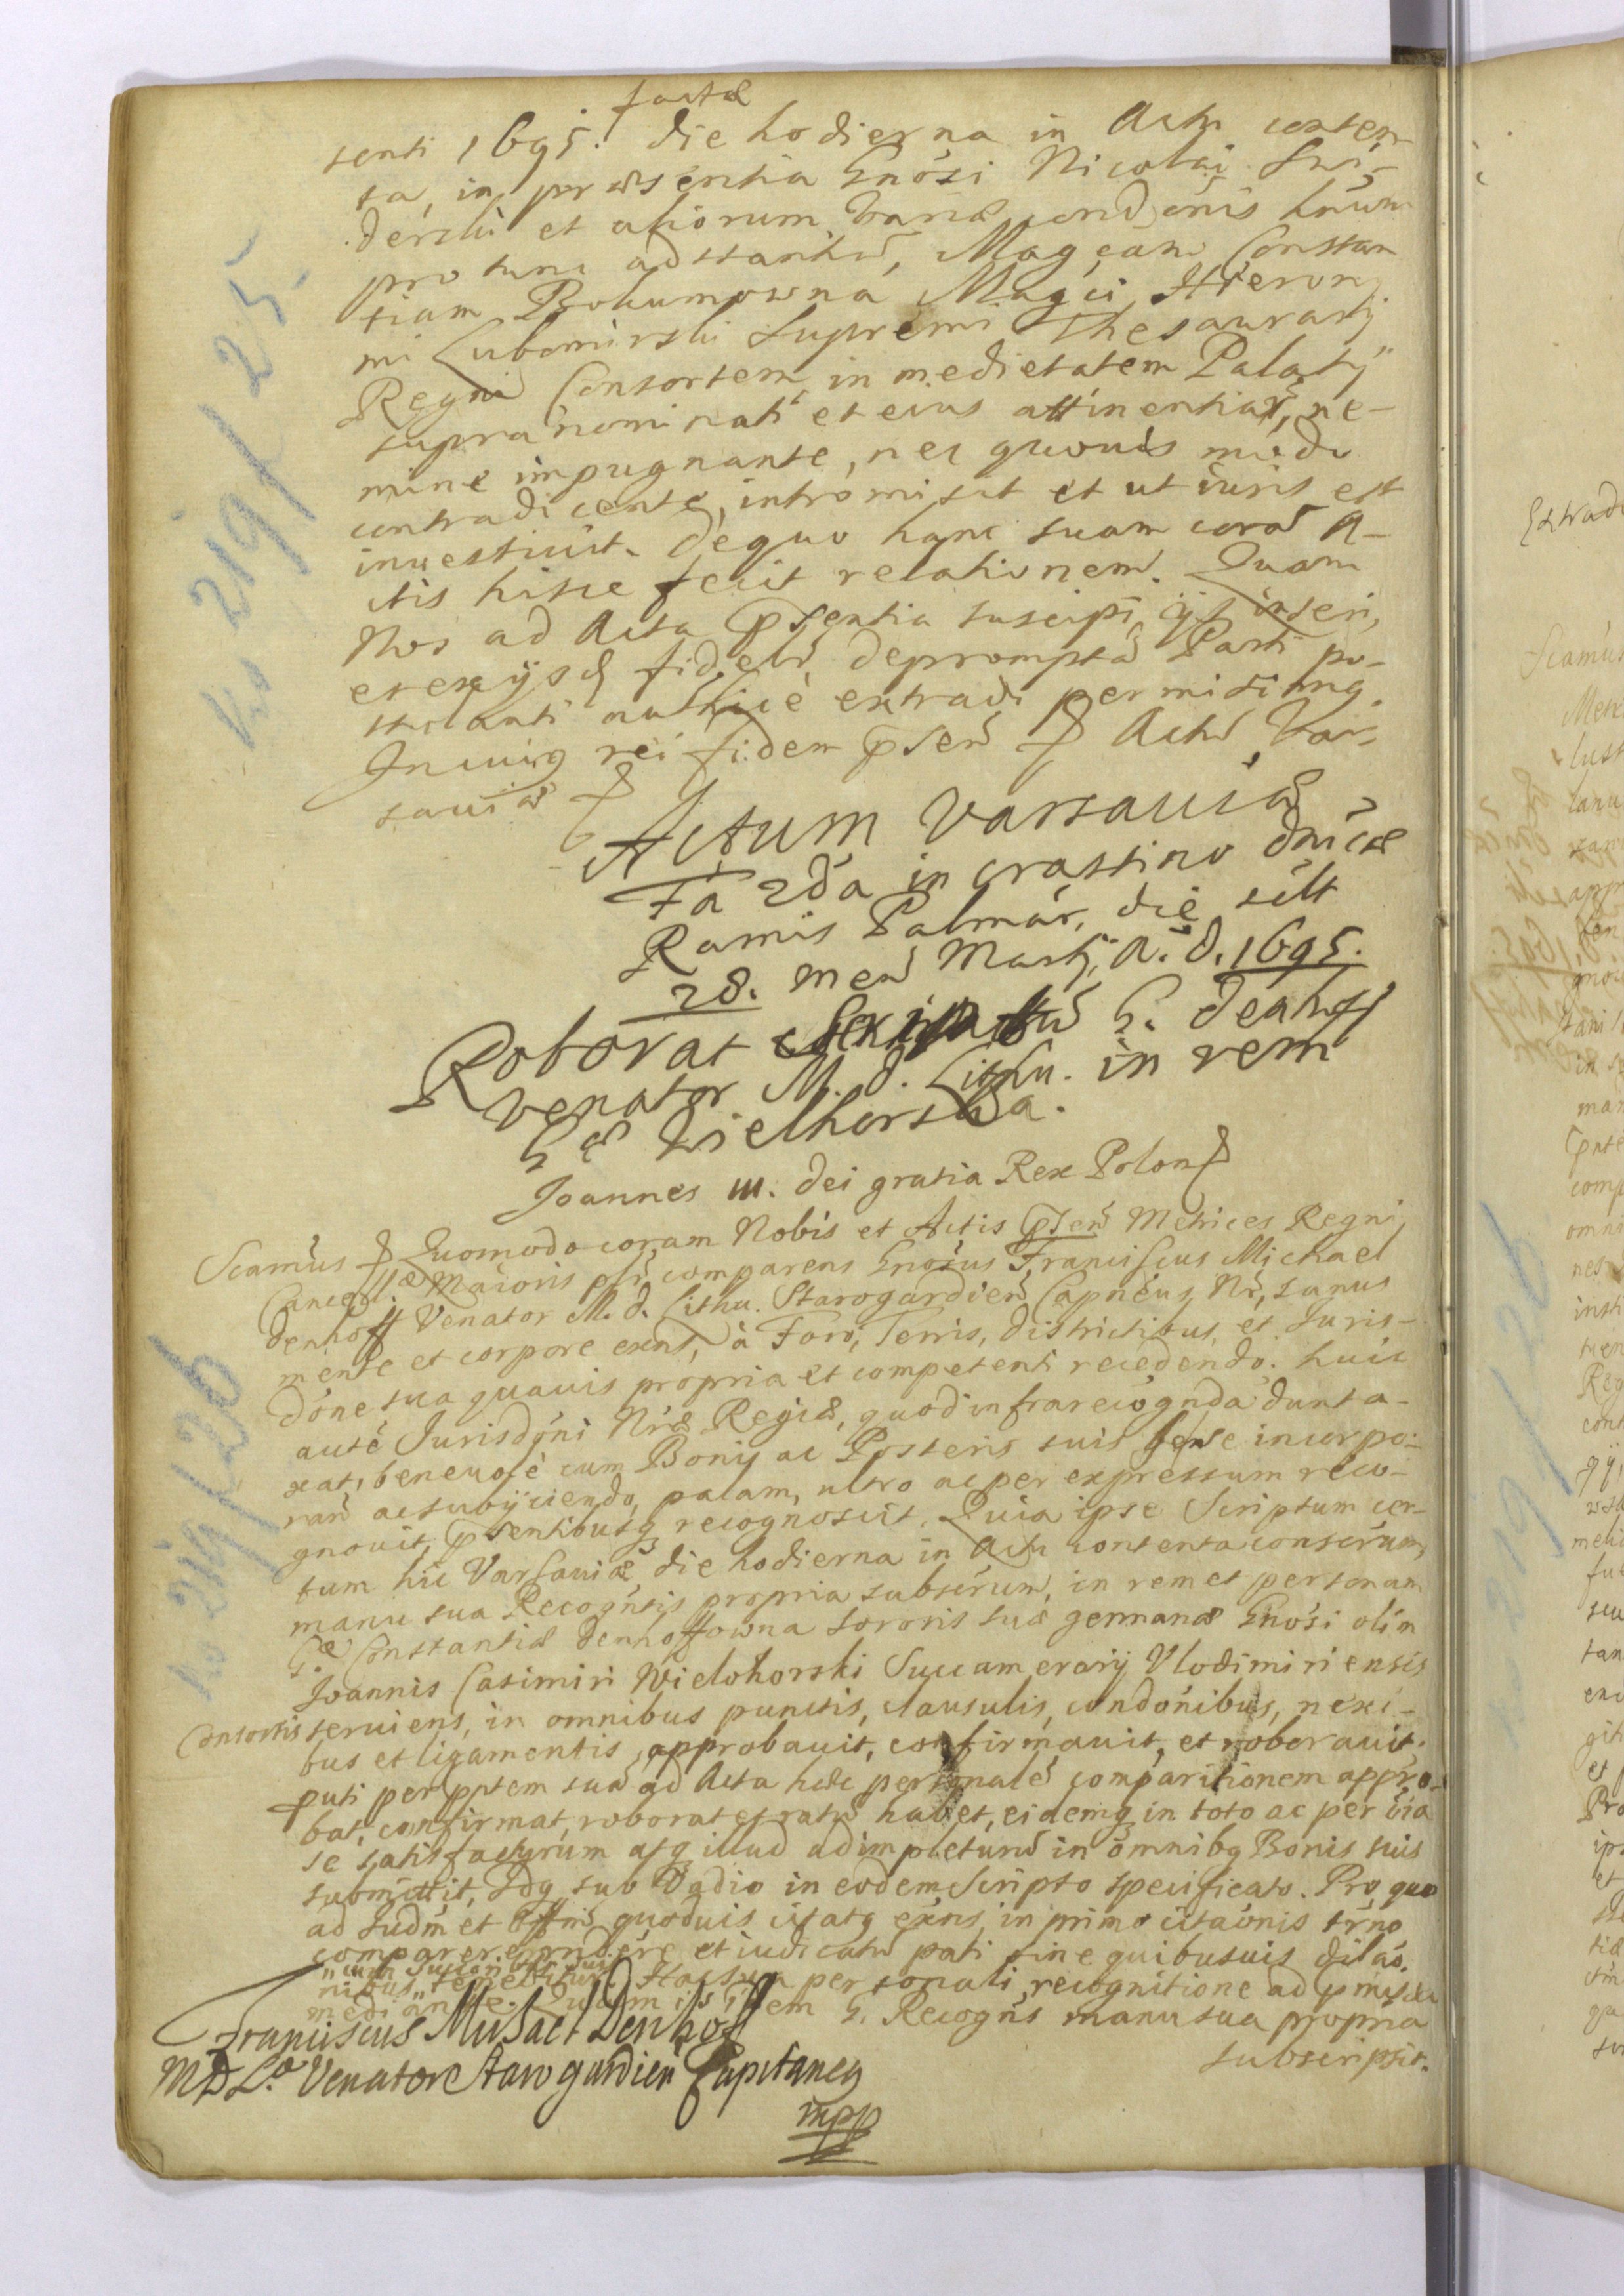 factæ
senti 1695. die hodierna in Actu conten
ta, in præsentia Gnosi Nicolai
derski et aliorum variæ condonis hnum
pro tunc adstantiũ, Magcam Constan
tiam Bokumowna Magci Hierony
mi Lubomirski Supremi Thesaurarij
Regni Consortem in medietatem Palatij
supra nominati et eius attinentiar, ne-
mine impugnante, nec quouis modo
contradicente, intromisit et ut iuris est
inuestiuit. dequo hanc suam corã A-
ctis hisce fecit relationem. Quam
Nos ad Acta pñsentia suscipi, inseri,
et ex ijsq fidelr depromptã Parti po-
stulanti authẽe extradi permisimq.
In cuiq rei fidem pñsen Actũ Var-
sauiæ
Actum Varsauiæ
Fa 2da in crastino dnicæ
Ramis Palmar, die silt
28. men Martij, A. D. 1695.
Roborat Scriptũ G. Denhoff
Venator M. D. Lithu. in rem
Gæ Wielhorska.
Joannes III. Dei gratia Rex Polon
Scamus Quomodo coram Nobis et Actis pñsen Metrices Regni,
Cancellæ Maioris psr comparens Gnosus Franciscus Michael
Denhoff Venator M. D. Lithu. Starogardien Capneus Nr, sanus
mente et corpore exns, à Foro, Terris, districtibus, et Juris-
done sua quauis propria et competenti recedendo. huic
autẽ Jurisdoni Nræ Regiæ, quod infra recognda dunta-
xat, beneuole cum Bonis ac Posteris suis sese incorpo-
ran ac subijciendo, palam, ultro ac per expressum reco-
gnouit, pñsentibusq recognoscit. Quia ipse Scriptum cer-
tum hic Varsauiæ die hodierna in Actu contenta conscrum,
manu sua Recogntis propria subscrum, in rem et personam
Gæ Constantiæ Denhoffowna sororis suæ germanæ Gnosi olim
Joannis Casimiri Wielohorski Succamerarij Vlodimiriensis
Consortis seruiens, in omnibus punctis, clausulis, condonibus, nexi-
bus et ligamentis, approbauit, confirmauit, et roborauit.
puti per pntem suã ad Acta hæc personalẽ comparitionem appro-
bat, confirmat, roborat et ratũ habet, eidemq in toto ac per oia
se satisfacturum atq illud adimpleturũ in omnibq Bonis suis
submittit, Idq sub Vadio in eodem Scripto specificato. Pro quo
ad Judm et Offm quoduis citatq exns, in primo citaonis trno
comparere, rndere et iudicatũ pati sine quibusuis dilao.
nibus, tenebitur. Hac sua personali recognitione ad pmissa
mediante. Quam is idem G. Recogns manu sua propria
subscripsit.
Franciscus Michael Denhoff
MDL.o Venator Starogardien Capitaneq
mpp
No 219/25
No 219/26